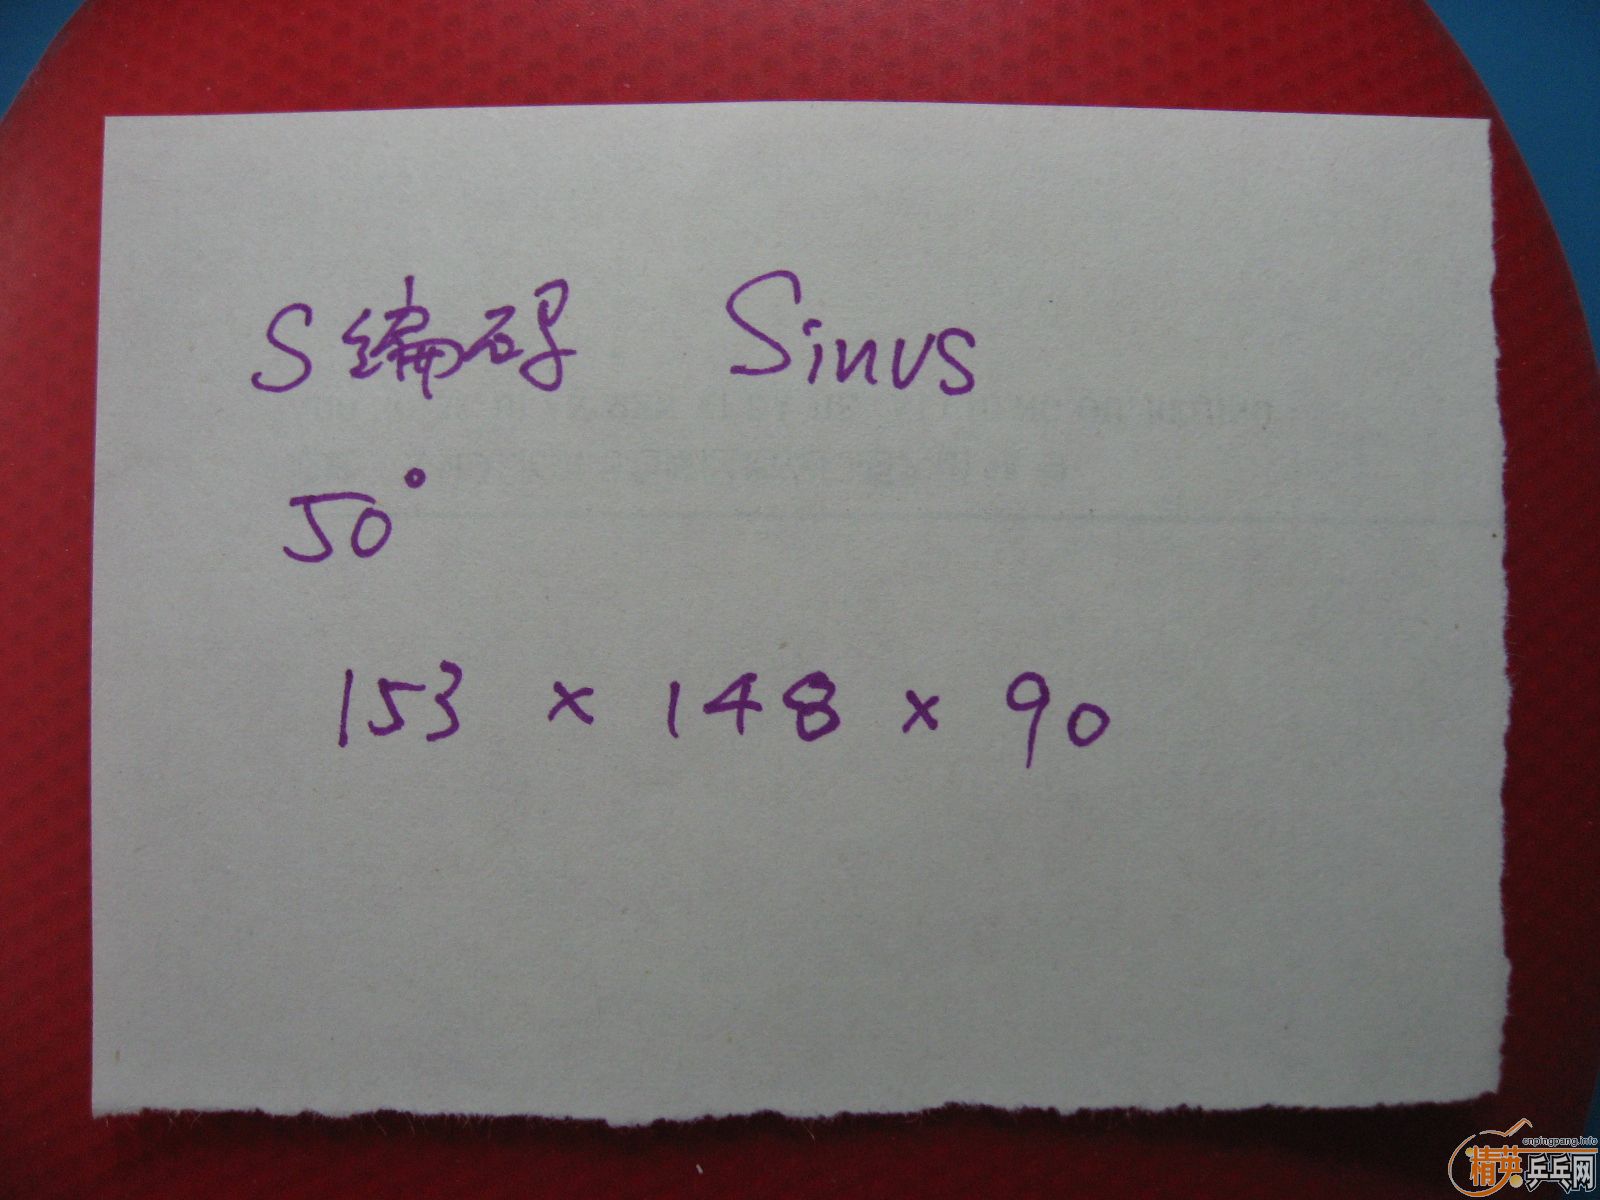 S编码 Sinus
50°
153 × 148 × 90
cnpingpang.info
精英乒乓网